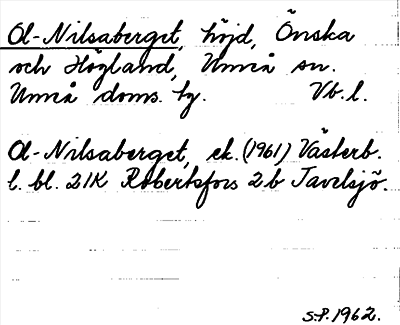 Ol-Nilsaberget, höjd, Önska
och Högland, Umeå sn.
Umeå doms. hg. Vb. l.
Ol-Nilsaberget, ek. (1961) Västerb.
l. bl. 21K Robertsfors 2b Tavelsjö.
S.P. 1962.